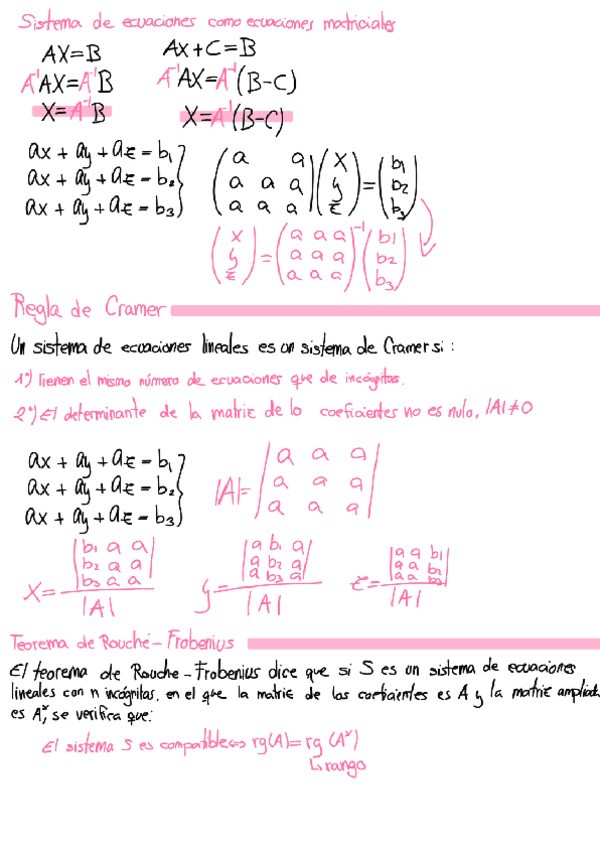 Sistema de ecuaciones como ecuaciones matriciales
AX=B
AX+C=B
A⁻¹AX=A⁻¹B
A⁻¹AX=A⁻¹(B-C)
X=A⁻¹B
X=A⁻¹(B-C)
ax + ay + az = b₁
ax + ay + az = b₂
ax + ay + az = b₃
(a a
a a a
a a a) (x
y
z) = (b₁
b₂
b₃)
(x
y
z) = (a a a
a a a
a a a)⁻¹ (b₁
b₂
b₃)
Regla de Cramer
Un sistema de ecuaciones lineales es un sistema de Cramer si:
1º) Tienen el mismo número de ecuaciones que de incógnitas.
2º) El determinante de la matriz de lo coeficientes no es nulo, |A|≠0
ax + ay + az = b₁
ax + ay + az = b₂
ax + ay + az = b₃
|A|= |a a a
a a a
a a a|
x= |b₁ a a
b₂ a a
b₃ a a|
|A|
y= |a b₁ a
a b₂ a
a b₃ a|
|A|
z= |a a b₁
a a b₂
a a b₃|
|A|
Teorema de Rouché-Frobenius
El teorema de Rouche-Frobenius dice que si S es un sistema de ecuaciones
lineales con n incógnitas, en el que la matriz de los coeficientes es A y la matriz ampliad
es A*, se verifica que:
El sistema S es compatible⇔ rg(A)= rg (A*)
↳ rango